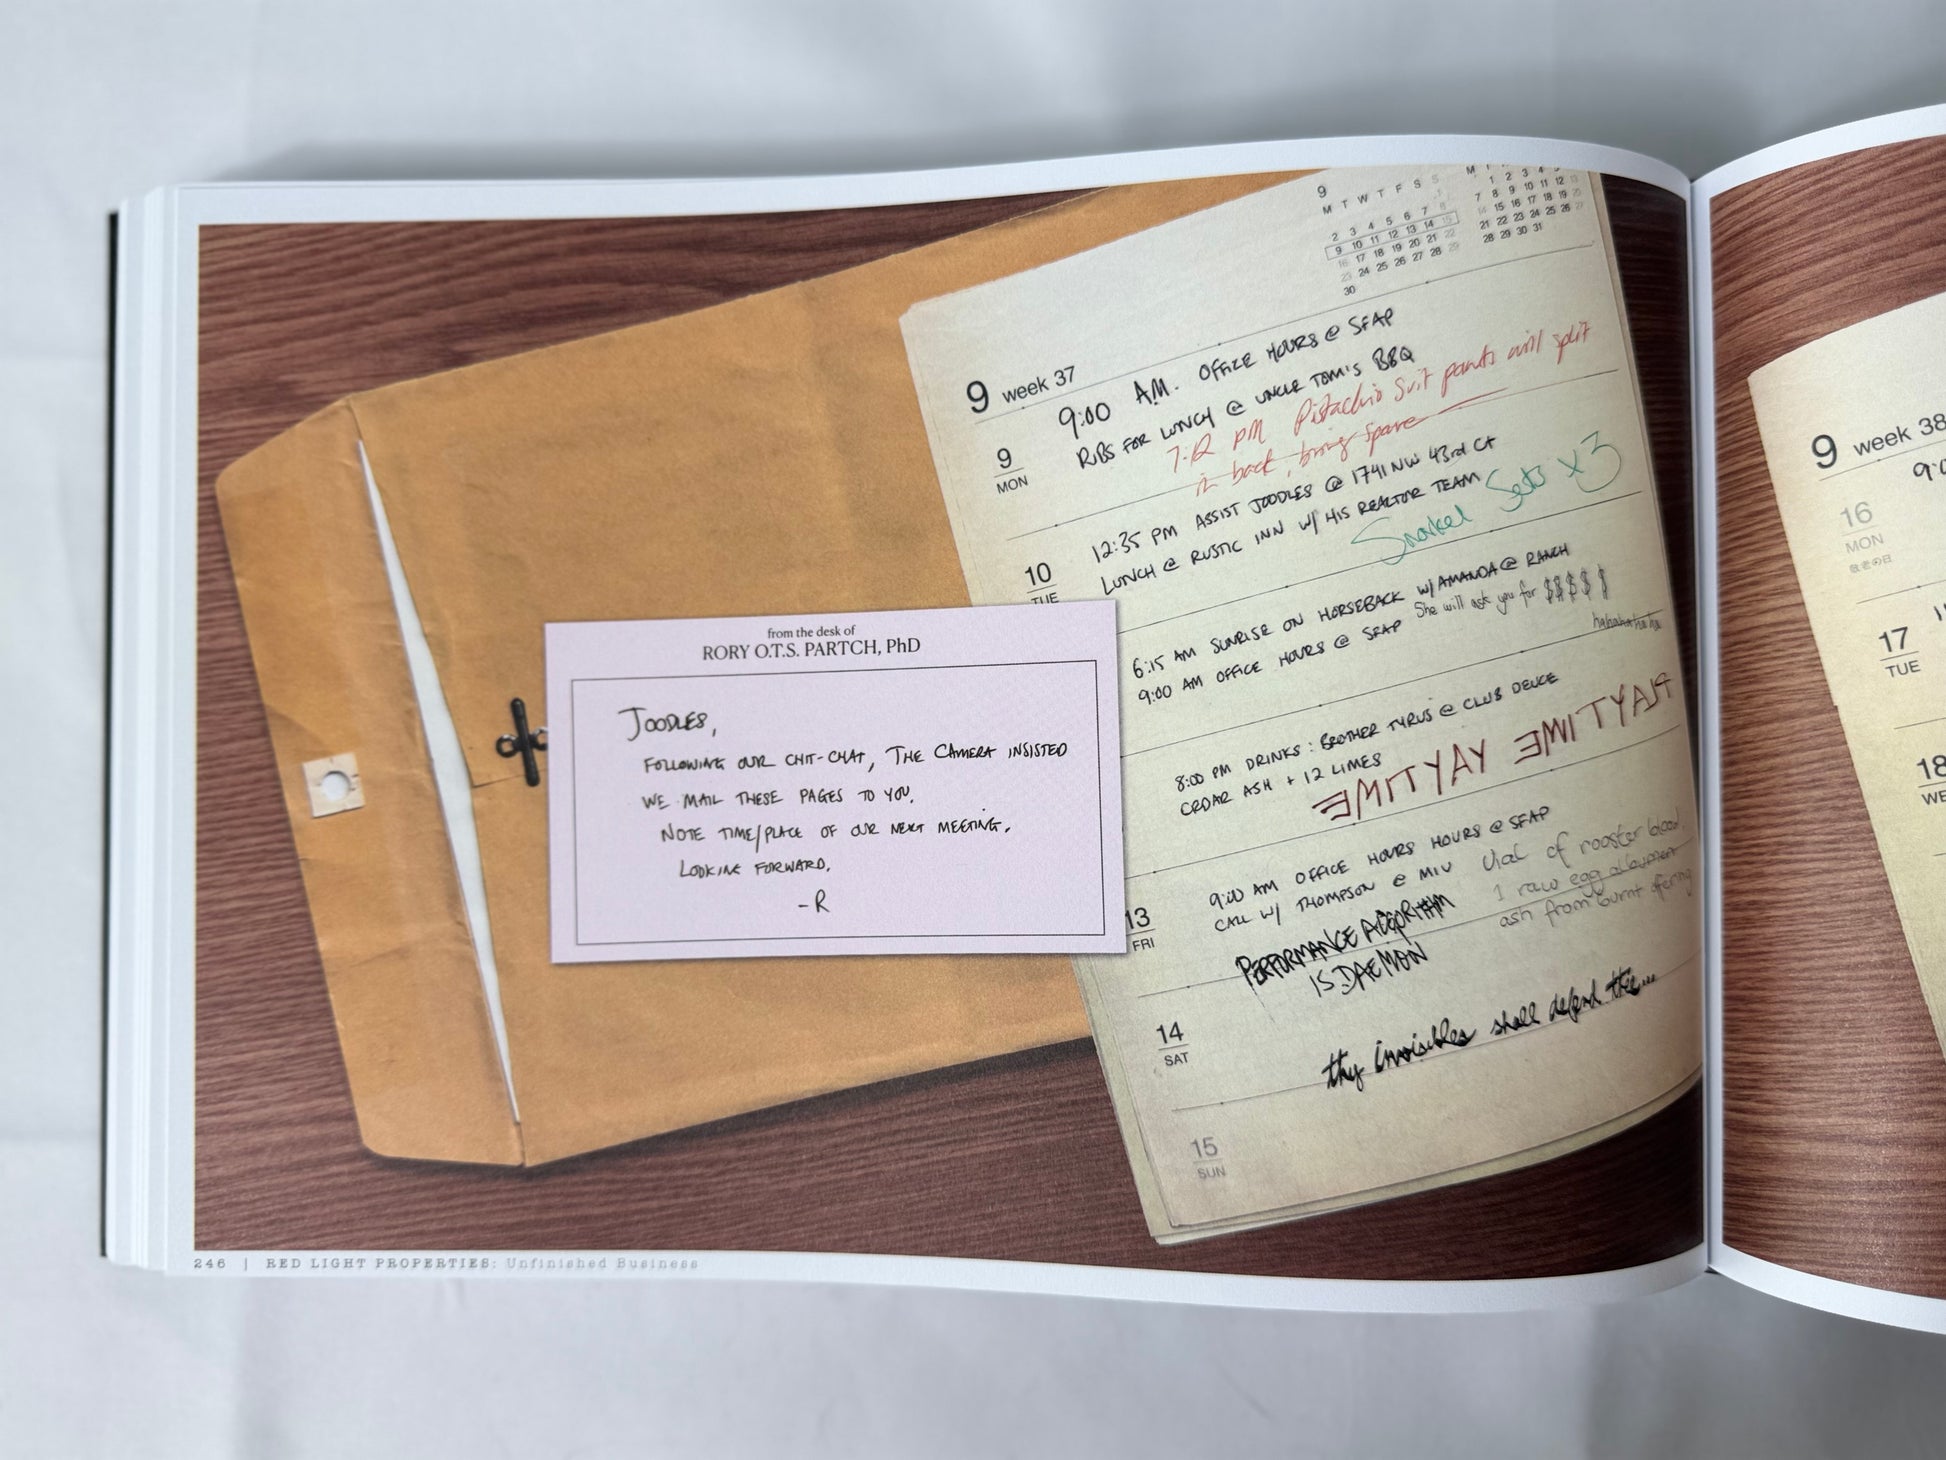 9
M T W T F S S
1
2 3 4 5 6 7 8
9 10 11 12 13 14 15
16 17 18 19 20 21 22
23 24 25 26 27 28 29
30
1 2 3 4 5
7 8 9 10 11 12 13
14 15 16 17 18 19 20
21 22 23 24 25 26 27
28 29 30 31
9 week 37
9
MON
9:00 A.M. OFFICE HOURS @ SFAP
RIBS FOR LUNCH @ UNCLE TOM'S BBQ
7:12 PM Pistachio suit pants will split
in back, bring spare
10
TUE
12:35 PM ASSIST JOODLES @ 1741 NW 43rd CT
LUNCH @ RUSTIC INN W/ HIS REALTOR TEAM
Snorkel Sets x3
6:15 AM SUNRISE ON HORSEBACK W/ AMANDA @ RANCH
She will ask you for $$$$$
hahahahaha
9:00 AM OFFICE HOURS @ SFAP
8:00 PM DRINKS: BROTHER TYRUS @ CLUB DEUCE
CEDAR ASH + 12 LIMES
EMITYAY EMITYALP
13
FRI
9:00 AM OFFICE HOURS HOURS @ SFAP
CALL W/ THOMPSON @ MIU
Vial of rooster blood
1 raw egg albumen
ash from burnt offering
PERFORMANCE ALGORITHM
IS DAEMON
14
SAT
thy invisibles shall defend thee...
15
SUN
from the desk of
RORY O.T.S. PARTCH, PhD
JOODLES,
FOLLOWING OUR CHIT-CHAT, THE CAMERA INSISTED
WE MAIL THESE PAGES TO YOU.
NOTE TIME/PLACE OF OUR NEXT MEETING.
LOOKING FORWARD.
-R
246 | RED LIGHT PROPERTIES: Unfinished Business
9 week 38
16
MON
敬老の日
17
TUE
18